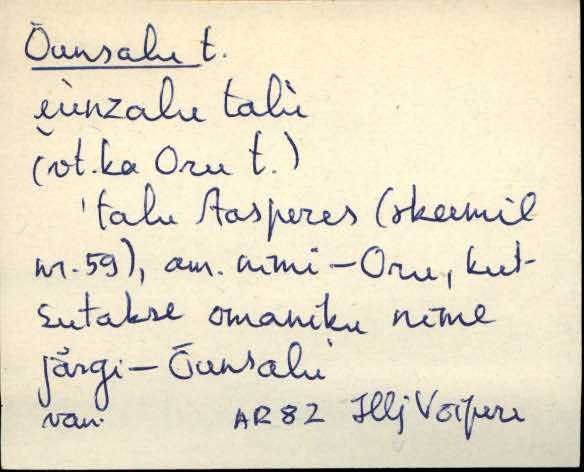 Õunsalu t.
e̮u̬nzalu talù
(vt. ka Oru t.)
'talu Aasperes (skeemil
nr. 59), am. nimi – Oru, kut-
sutakse omaniku nime
järgi – Õunsalu'
van. AR82 Hlj Voipere